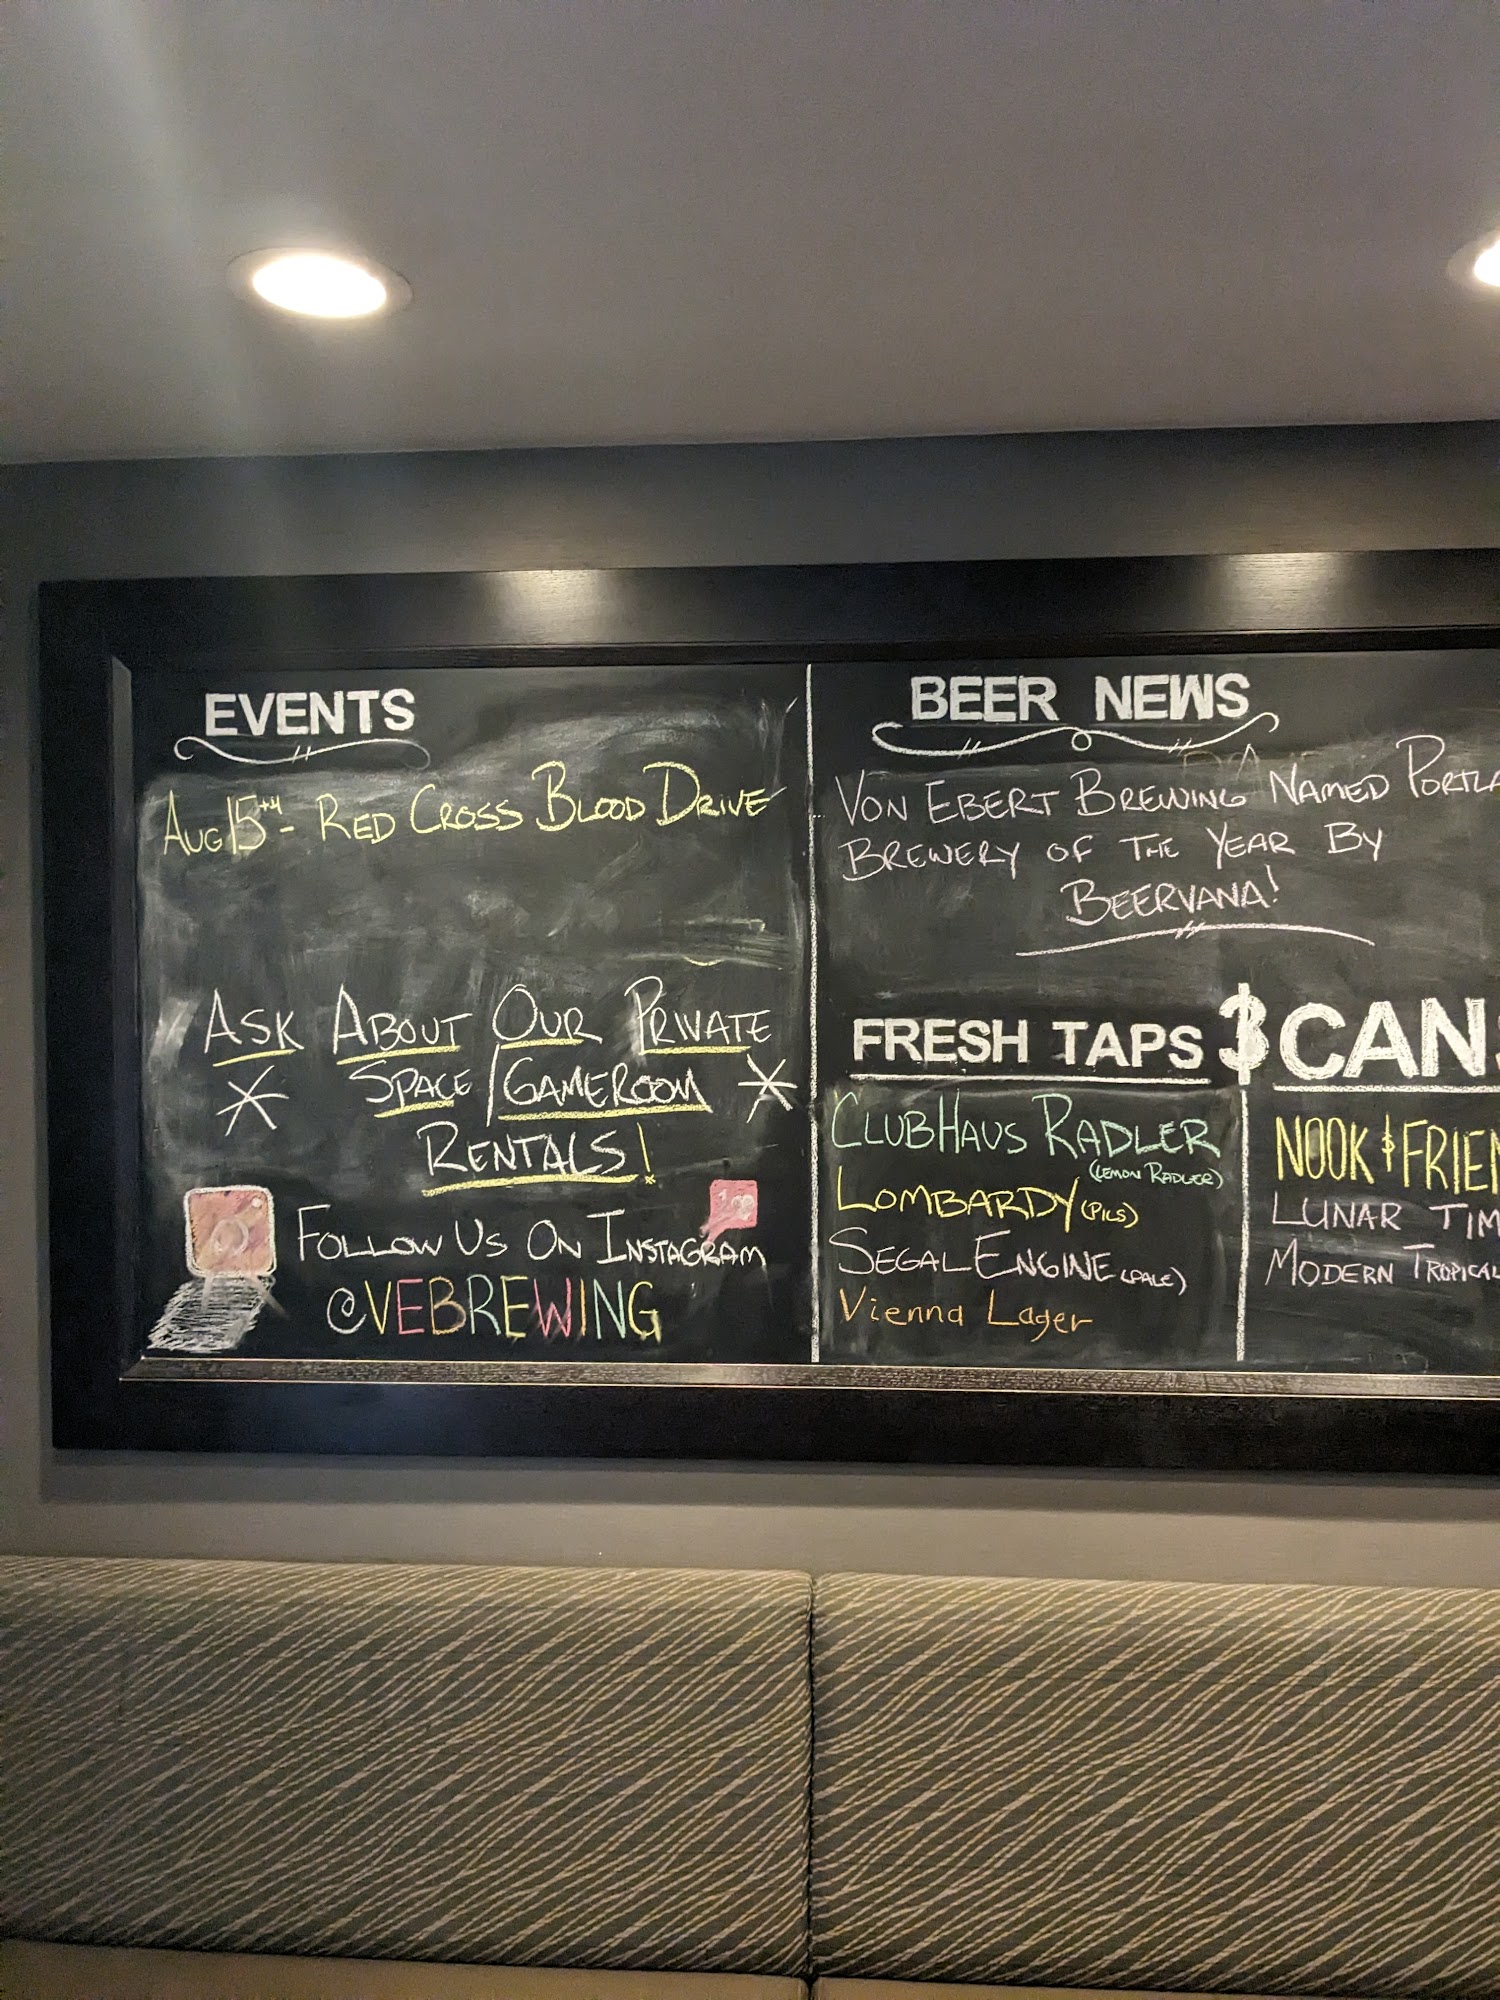 EVENTS
AUG 15TH - RED CROSS BLOOD DRIVE
ASK ABOUT OUR PRIVATE
SPACE/GAMEROOM
RENTALS!
FOLLOW US ON INSTAGRAM
@VEBREWING
BEER NEWS
VON EBERT BREWING NAMED PORTLA
BREWERY OF THE YEAR BY
BEERVANA!
FRESH TAPS & CANS
CLUBHAUS RADLER
(LEMON RADLER)
LOMBARDY (PILS)
SEGAL ENGINE (PALE)
Vienna Lager
NOOK & FRIEN
LUNAR TIM
MODERN TROPICAL